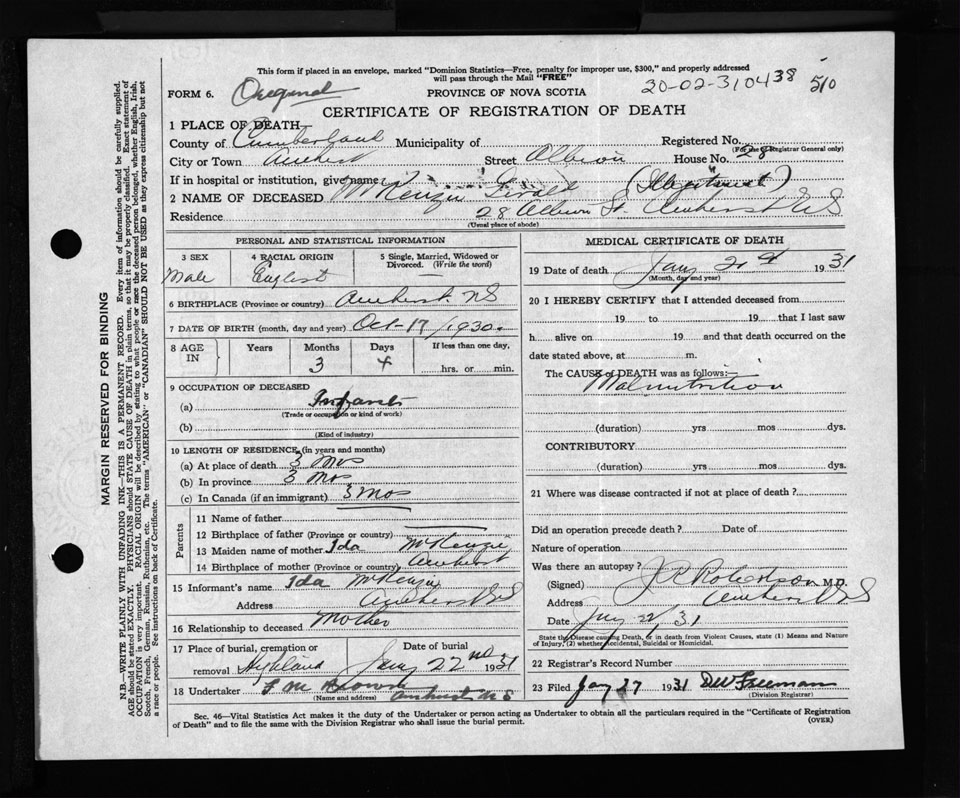 This form if placed in an envelope, marked "Dominion Statistics—Free, penalty for improper use, $300," and properly addressed
will pass through the Mail "FREE"
FORM 6. Original PROVINCE OF NOVA SCOTIA 20-02-310438 510
CERTIFICATE OF REGISTRATION OF DEATH
1 PLACE OF DEATH—
County of Cumberland Municipality of Registered No.
(For use of Registrar General only)
City or Town Amherst Street Albion House No. 28
If in hospital or institution, give name (Illegitimate)
2 NAME OF DECEASED McKenzie Gerald
Residence 28 Albion St. Amherst NS
(Usual place of abode)
PERSONAL AND STATISTICAL INFORMATION
3 SEX 4 RACIAL ORIGIN 5 Single, Married, Widowed or Divorced. (Write the word)
Male English
6 BIRTHPLACE (Province or country) Amherst. NS
7 DATE OF BIRTH (month, day and year) Oct-17/1930.
8 AGE IN Years Months Days If less than one day,
3 4 hrs. or min.
9 OCCUPATION OF DECEASED
(a) Infant
(Trade or occupation or kind of work)
(b)
(Kind of industry)
10 LENGTH OF RESIDENCE (in years and months)
(a) At place of death 3 Mos
(b) In province 3 Mos
(c) In Canada (if an immigrant) 3 Mos
Parents
11 Name of father
12 Birthplace of father (Province or country)
13 Maiden name of mother Ida McKenzie
14 Birthplace of mother (Province or country) Amherst
15 Informant's name Ida McKenzie
Address Amherst NS
16 Relationship to deceased Mother
17 Place of burial, cremation or removal Highland Date of burial Jany 22nd 1931
18 Undertaker F M Brown
(Name and address) Amherst NS
MEDICAL CERTIFICATE OF DEATH
19 Date of death Jany 21st 1931
(Month, day and year)
20 I HEREBY CERTIFY that I attended deceased from
19 to 19 that I last saw
h alive on 19 and that death occurred on the
date stated above, at m.
The CAUSE of DEATH was as follows:—
Malnutrition
(duration) yrs mos dys.
CONTRIBUTORY
(duration) yrs mos dys.
21 Where was disease contracted if not at place of death?
Did an operation precede death? Date of
Nature of operation
Was there an autopsy?
(Signed) J R Robertson M.D.
Address Amherst NS
Date Jany 22/31
State the Disease causing Death, or in death from Violent Causes, state (1) Means and Nature
of Injury, (2) whether Accidental, Suicidal or Homicidal.
22 Registrar's Record Number
23 Filed Jany 27 1931 DW Freeman
(Division Registrar)
Sec. 46—Vital Statistics Act makes it the duty of the Undertaker or person acting as Undertaker to obtain all the particulars required in the "Certificate of Registration
of Death" and to file the same with the Division Registrar who shall issue the burial permit. (OVER)
MARGIN RESERVED FOR BINDING
N.B.—WRITE PLAINLY WITH UNFADING INK—THIS IS A PERMANENT RECORD. Every item of information should be carefully supplied.
AGE should be stated EXACTLY. PHYSICIANS should STATE CAUSE OF DEATH in plain terms, so that it may be properly classified. Exact statement of
OCCUPATION is very important. RACIAL ORIGIN will be described by stating to what people or race the deceased person belonged, whether English, Irish,
Scotch, French, German, Russian, Ruthenian, etc. The terms "AMERICAN" or "CANADIAN" SHOULD NOT BE USED as they express citizenship but not
a race or people. See instructions on back of Certificate.